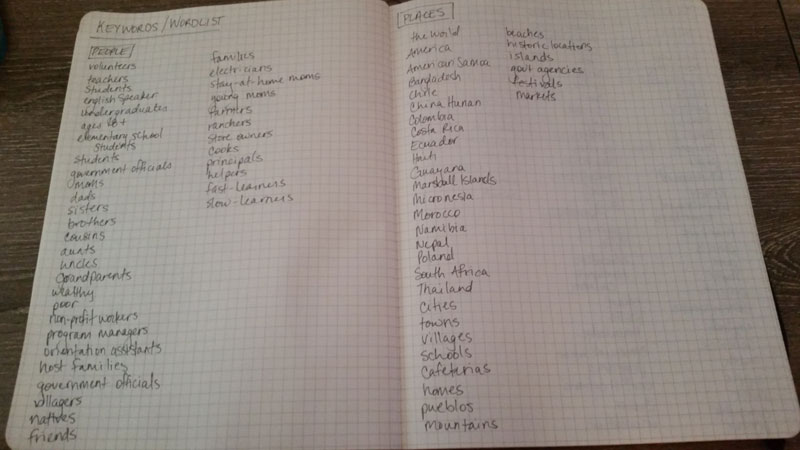 KEYWORDS/WORDLIST
PEOPLE
volunteers
teachers
students
english speaker
undergraduates
aged 18+
elementary school
students
students
government officials
moms
dads
sisters
brothers
cousins
aunts
uncles
Grandparents
wealthy
poor
non-profit workers
program managers
orientation assistants
host families
government officials
villagers
natives
friends
families
electricians
stay-at-home moms
young moms
farmers
ranchers
store owners
cooks
principals
helpers
fast-learners
slow-learners
PLACES
the World
America
American Samoa
Bangladesh
Chile
China Hunan
Colombia
Costa Rica
Ecuador
Haiti
Guayana
Marshall Islands
Micronesia
Morocco
Namibia
Nepal
Poland
South Africa
Thailand
cities
towns
villages
schools
cafeterias
homes
pueblos
mountains
beaches
historic locations
islands
govt agencies
festivals
markets